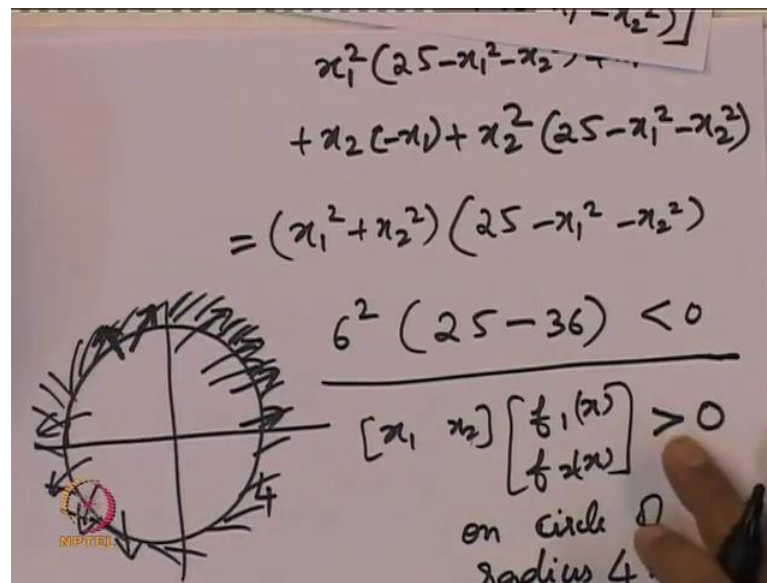 x₁ - x₂²)]
x₁²(25-x₁²-x₂²)+
+ x₂(-x₁) + x₂²(25-x₁²-x₂²)
= (x₁²+x₂²)(25-x₁²-x₂²)
6² (25-36) < 0
[x₁ x₂] [f₁(x) f₂(x)] > 0
4
on circle
radius 4
NPTEL